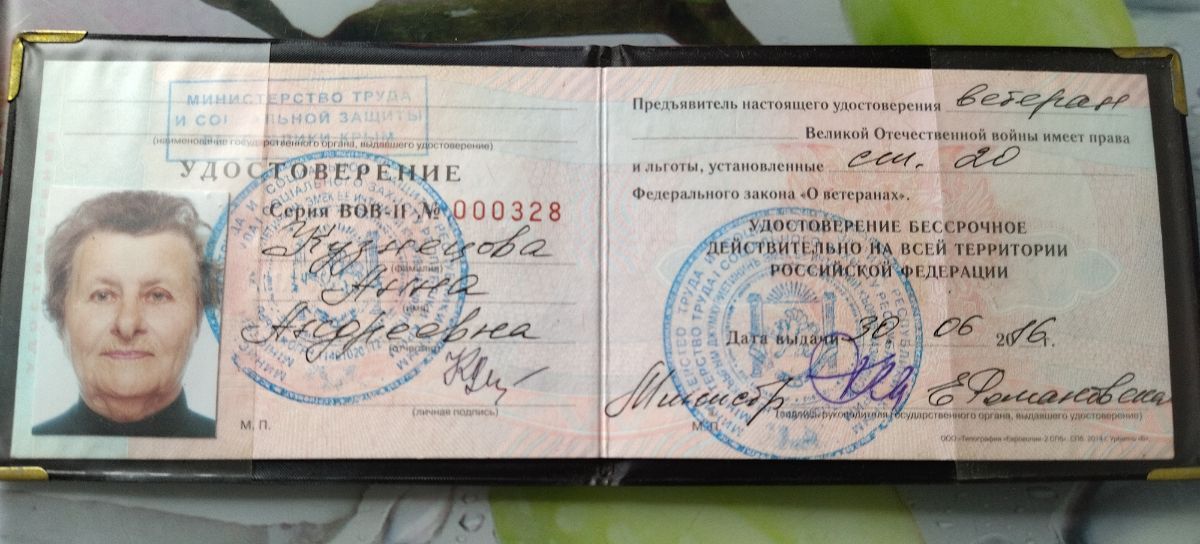 МИНИСТЕРСТВО ТРУДА
И СОЦИАЛЬНОЙ ЗАЩИТЫ
РЕСПУБЛИКИ КРЫМ
(наименование государственного органа, выдавшего удостоверение)
УДОСТОВЕРЕНИЕ
Серия ВОВ-II № 000328
Кузнецова
(фамилия)
Анна
(имя)
Андреевна
(отчество)
(личная подпись)
М. П.
Предъявитель настоящего удостоверения ветеран
Великой Отечественной войны имеет права
и льготы, установленные ст. 20
Федерального закона «О ветеранах».
УДОСТОВЕРЕНИЕ БЕССРОЧНОЕ
ДЕЙСТВИТЕЛЬНО НА ВСЕЙ ТЕРРИТОРИИ
РОССИЙСКОЙ ФЕДЕРАЦИИ
Дата выдачи 30 06 2016г.
Министр Е Романовская
(подпись руководителя государственного органа, выдавшего удостоверение)
М. П.